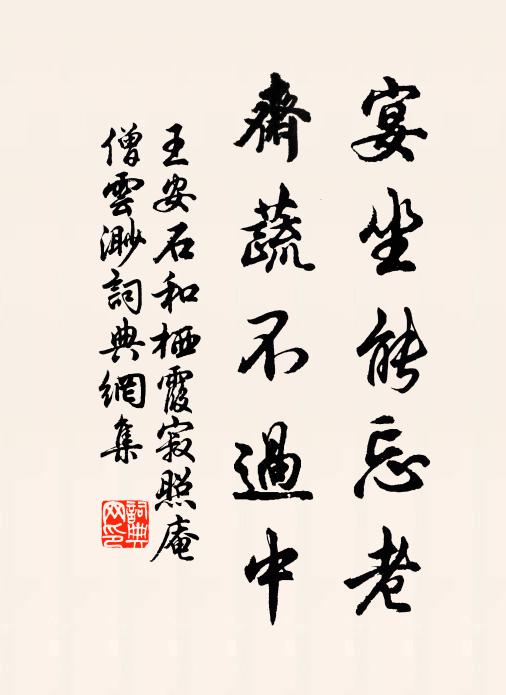 宴坐能忘老
齋蔬不過中
王安石和栖霞寂照庵
僧雲渺詞典網集
詞典
网印